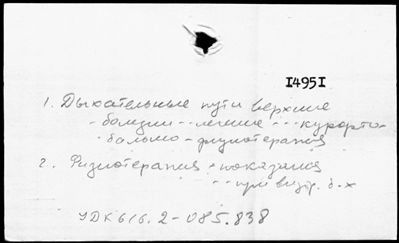 I495I
1. Дыхательные пути верхние
- болезни -- лечение --- курорто-
- бальнео-физиотерапия
2. Физиотерапия - показания
-- при
УДК 616.2-085.838